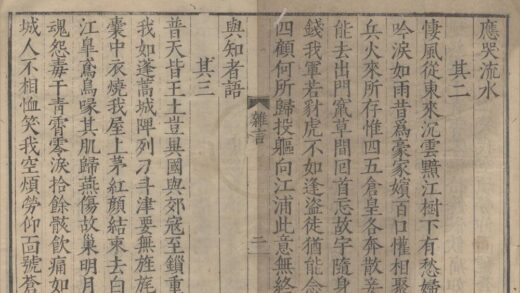 應哭流水
其二
悽風從東來沉雲黯江樹下有愁婦
吟淚如雨昔爲豪家嬪百口懽相聚
兵火來所存惟四五倉皇各奔散
能去出門竄草間回首忘故宇隨身
錢我軍若豺虎不如逢盜徒猶能念
四顧何所歸投軀向江浦此意無終
與知者語
雜言
二
其三
普天皆王土豈異國與郊寇至鎖重
我如蓬蒿城陴列刀斗津要無旌旄
囊中衣燒我屋上茅紅顏結束去白
江臯鳶烏喙其肌歸燕傷故巢明月
魂怨毒干青霄零淚拾餘骸飲痛如
城人不相恤笑我空煩勞仰面號蒼